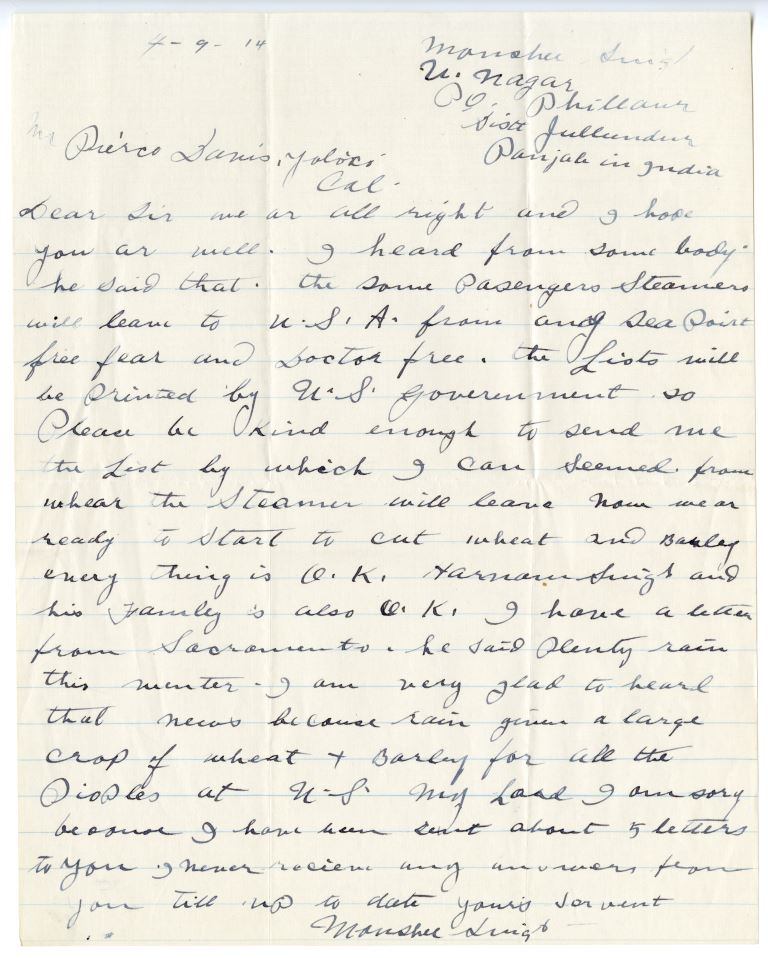 4-9-14
Monshee Singh
U. Nagar
P.O. Phillaur
Distt Jullundur
Panjab in India
Mr Pierco Danis, Yoloxi
Cal.
Dear Sir we ar all right and I hope
you ar well. I heard from some body
he said that. the some Pasengers Steamers
will leave to U.S.A. from any sea Poirt
free fear and Doctor free. the Lists will
be Printed by U.S. Goverenment so
Please be kind enough to send me
the List by which I can seemed from
whear the Steamer will leave Now we ar
ready to start to cut wheat and Barley
every thing is O.K. Harnam Singh and
his Familey is also O.K. I have a letter
from Sacromento. he said Plenty rain
this wenter. I am very glad to heard
that news because rain given a large
crop of wheat + Barley for all the
Pioples at U.S. My Lord I am sory
becouse I have been sent about 5 letters
to you I never recieve any answers from
you till up to date your's servent
Monshee Singh